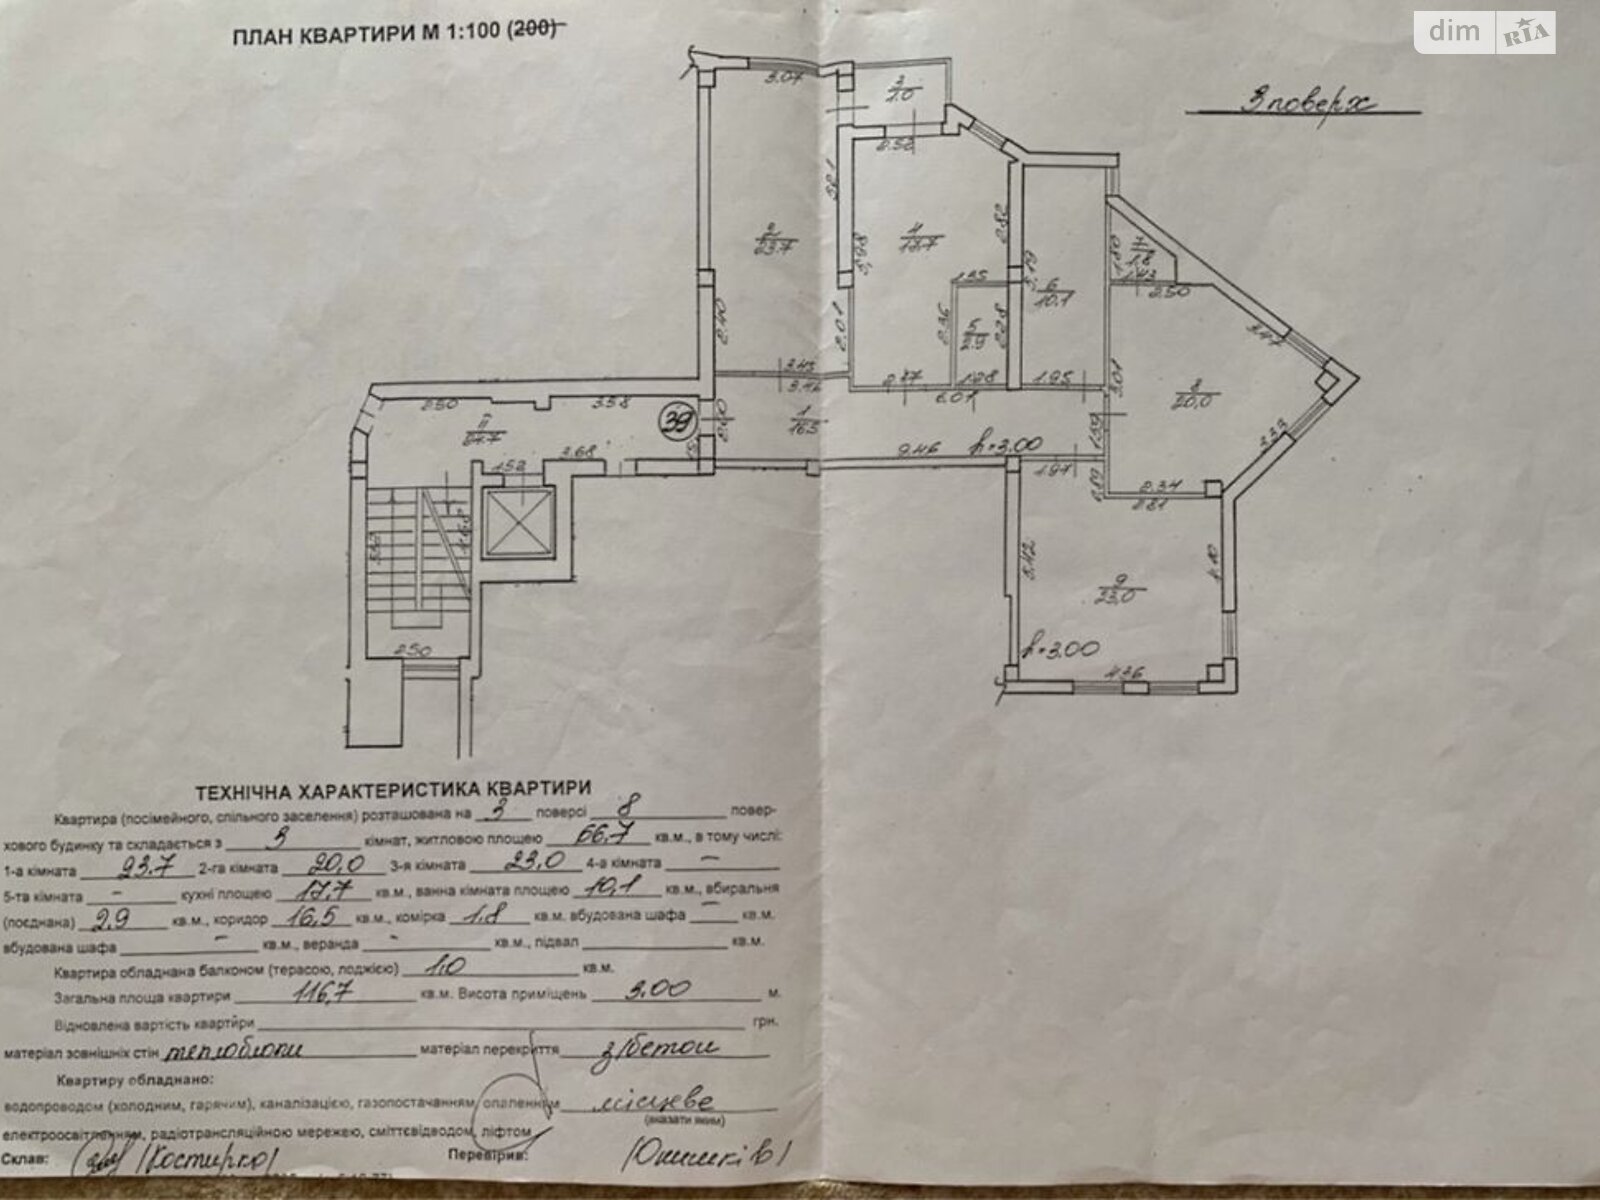 ПЛАН КВАРТИРИ М 1:100 (200)
dim RIA
3 поверх
3.07
3
1.0
2.50
2
23.7
4
17.7
3.98
2.82
5.19
6
10.1
1.80
7
1.8
1.43
2.50
3.47
2.40
2.01
1.35
2.36
5
2.9
2.28
3.01
8
20.0
3.45
3.46
2.47
1.28
1.95
6.01
2.50
3.58
39
2.00
1
16.5
1.59
3.33
II
3.68
1.52
9.46
h=3.00
1.97
2.34
2.81
5.42
4.10
9
23,0
2.50
h=3.00
4.36
ТЕХНІЧНА ХАРАКТЕРИСТИКА КВАРТИРИ
Квартира (посімейного, спільного заселення) розташована на 3 поверсі 8 повер-
хового будинку та складається з 3 кімнат, житловою площею 66,7 кв.м., в тому числі:
1-а кімната 23.7 2-га кімната 20,0 3-я кімната 23.0 4-а кімната –
5-та кімната – кухні площею 17,7 кв.м., ванна кімната площею 10,1 кв.м., вбиральня
(поєднана) 2,9 кв.м., коридор 16,5 кв.м., комірка 1.8 кв.м. вбудована шафа – кв.м.
вбудована шафа – кв.м., веранда – кв.м., підвал кв.м.
Квартира обладнана балконом (терасою, лоджією) 1.0 кв.м.
Загальна площа квартири 116,7 кв.м. Висота приміщень 3.00 м.
Відновлена вартість квартири грн.
матеріал зовнішніх стін теплоблоки матеріал перекриття з/бетон
Квартиру обладнано:
водопроводом (холодним, гарячим), каналізацією, газопостачанням, опаленням місцеве
(вказати яким)
електроосвітленням, радіотрансляційною мережею, сміттєвідводом, ліфтом
Склав: /Костирко/ Перевірив: